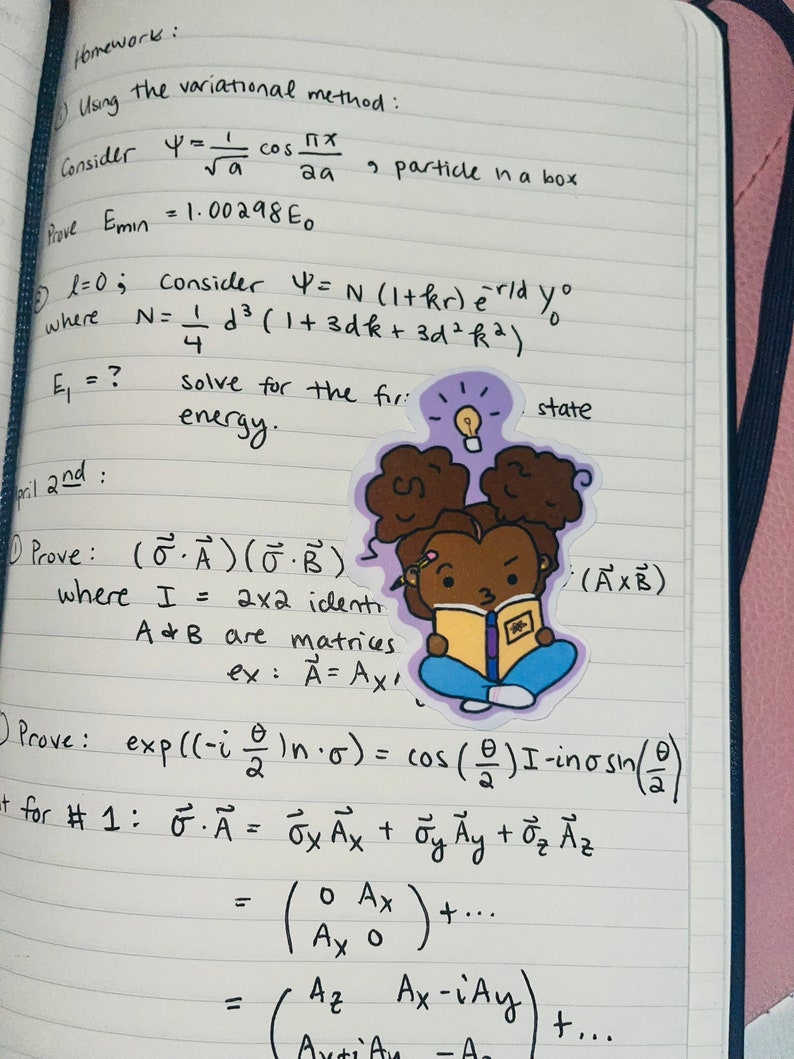 Homework:
1) Using the variational method:
Consider Ψ = 1/√a cos πx/2a , particle in a box
Prove Emin = 1.00298E₀
2) l=0; Consider Ψ = N (1+kr) e^-r/d Y₀⁰
where N = 1/4 d³ (1 + 3dk + 3d²k²)
E₁ = ? solve for the state
energy.
2nd:
1) Prove: (σ⃗·A⃗)(σ⃗·B⃗) ·(A⃗xB⃗)
where I = 2x2
A & B are matrices
ex: A⃗ = Ax,
) Prove: exp((-i θ/2)n·σ) = cos(θ/2)I-inσsin(θ/2)
for #1: σ⃗·A⃗ = σ⃗x A⃗x + σ⃗y A⃗y + σ⃗z A⃗z
= (0 Ax
Ax 0) + ...
= (Az Ax-iAy
Ax+iAy -Az) + ...